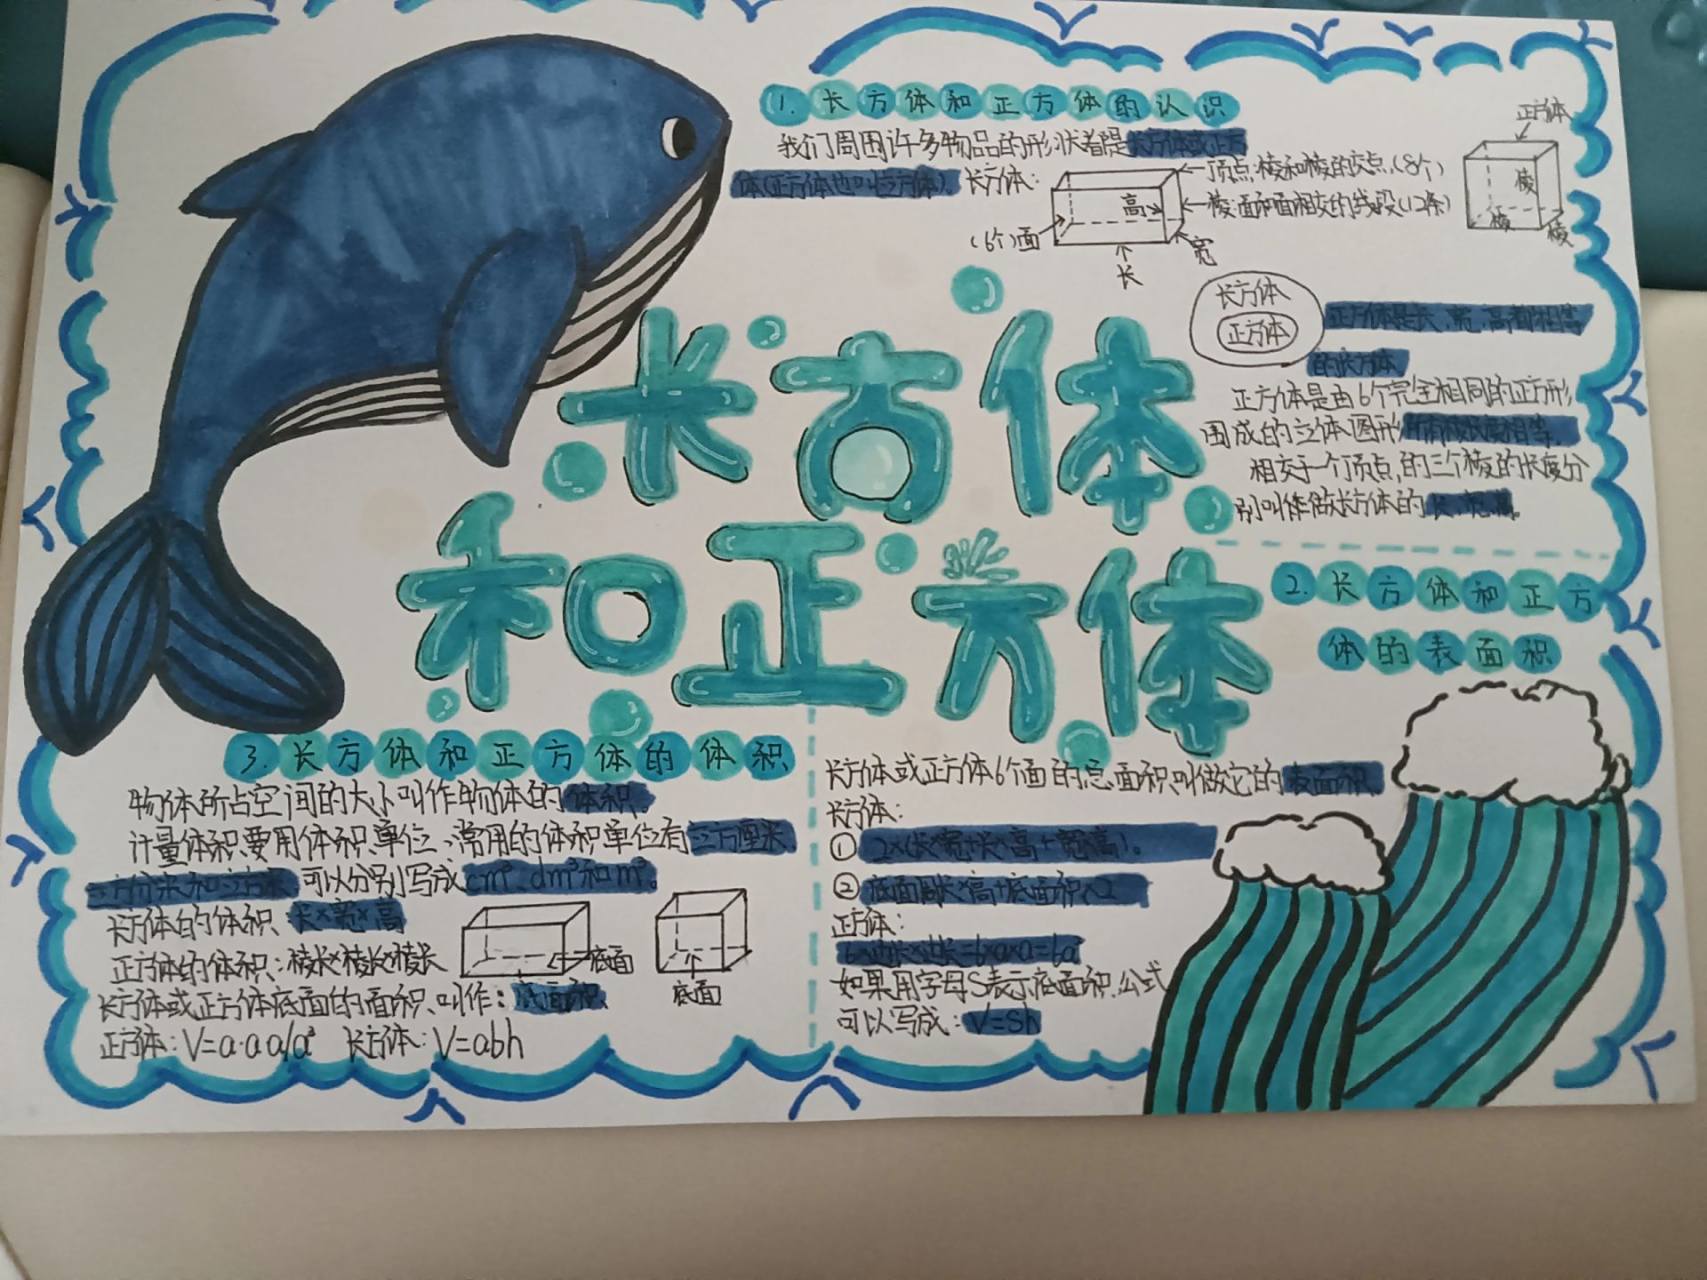 1.长方体和正方体的认识
我们周围许多物品的形状都是长方体或正方
体(正方体也叫立方体)。长方体:
顶点:棱和棱的交点(8个)
棱:面和面相交的线段(12条)
高
(6个)面
长
宽
正方体
棱
棱
棱
长方体
正方体
正方体是长、宽、高都相等
的长方体
正方体是由6个完全相同的正方形
围成的立体图形
相交于一个顶点,的三个棱的长度分
别叫作做长方体的长、宽、高。
长方体
和正方体
2.长方体和正方
体的表面积
长方体或正方体6个面的总面积叫做它的表面积
长方体:
① 2×(长×宽+长×高+宽×高)。
② 底面周长×高+底面积×2
正方体:
6×边长×边长=6×a×a=6a²
如果用字母S表示底面积,公式
可以写成:V=Sh
3.长方体和正方体的体积
物体所占空间的大小叫作物体的体积。
计量体积要用体积单位,常用的体积单位有立方厘米
立方分米和立方米 可以分别写成cm³、dm³和m³。
长方体的体积:长×宽×高
正方体的体积:棱长×棱长×棱长
底面
底面
长方体或正方体底面的面积,叫作:底面积
正方体:V=a·a·a/a³ 长方体:V=abh